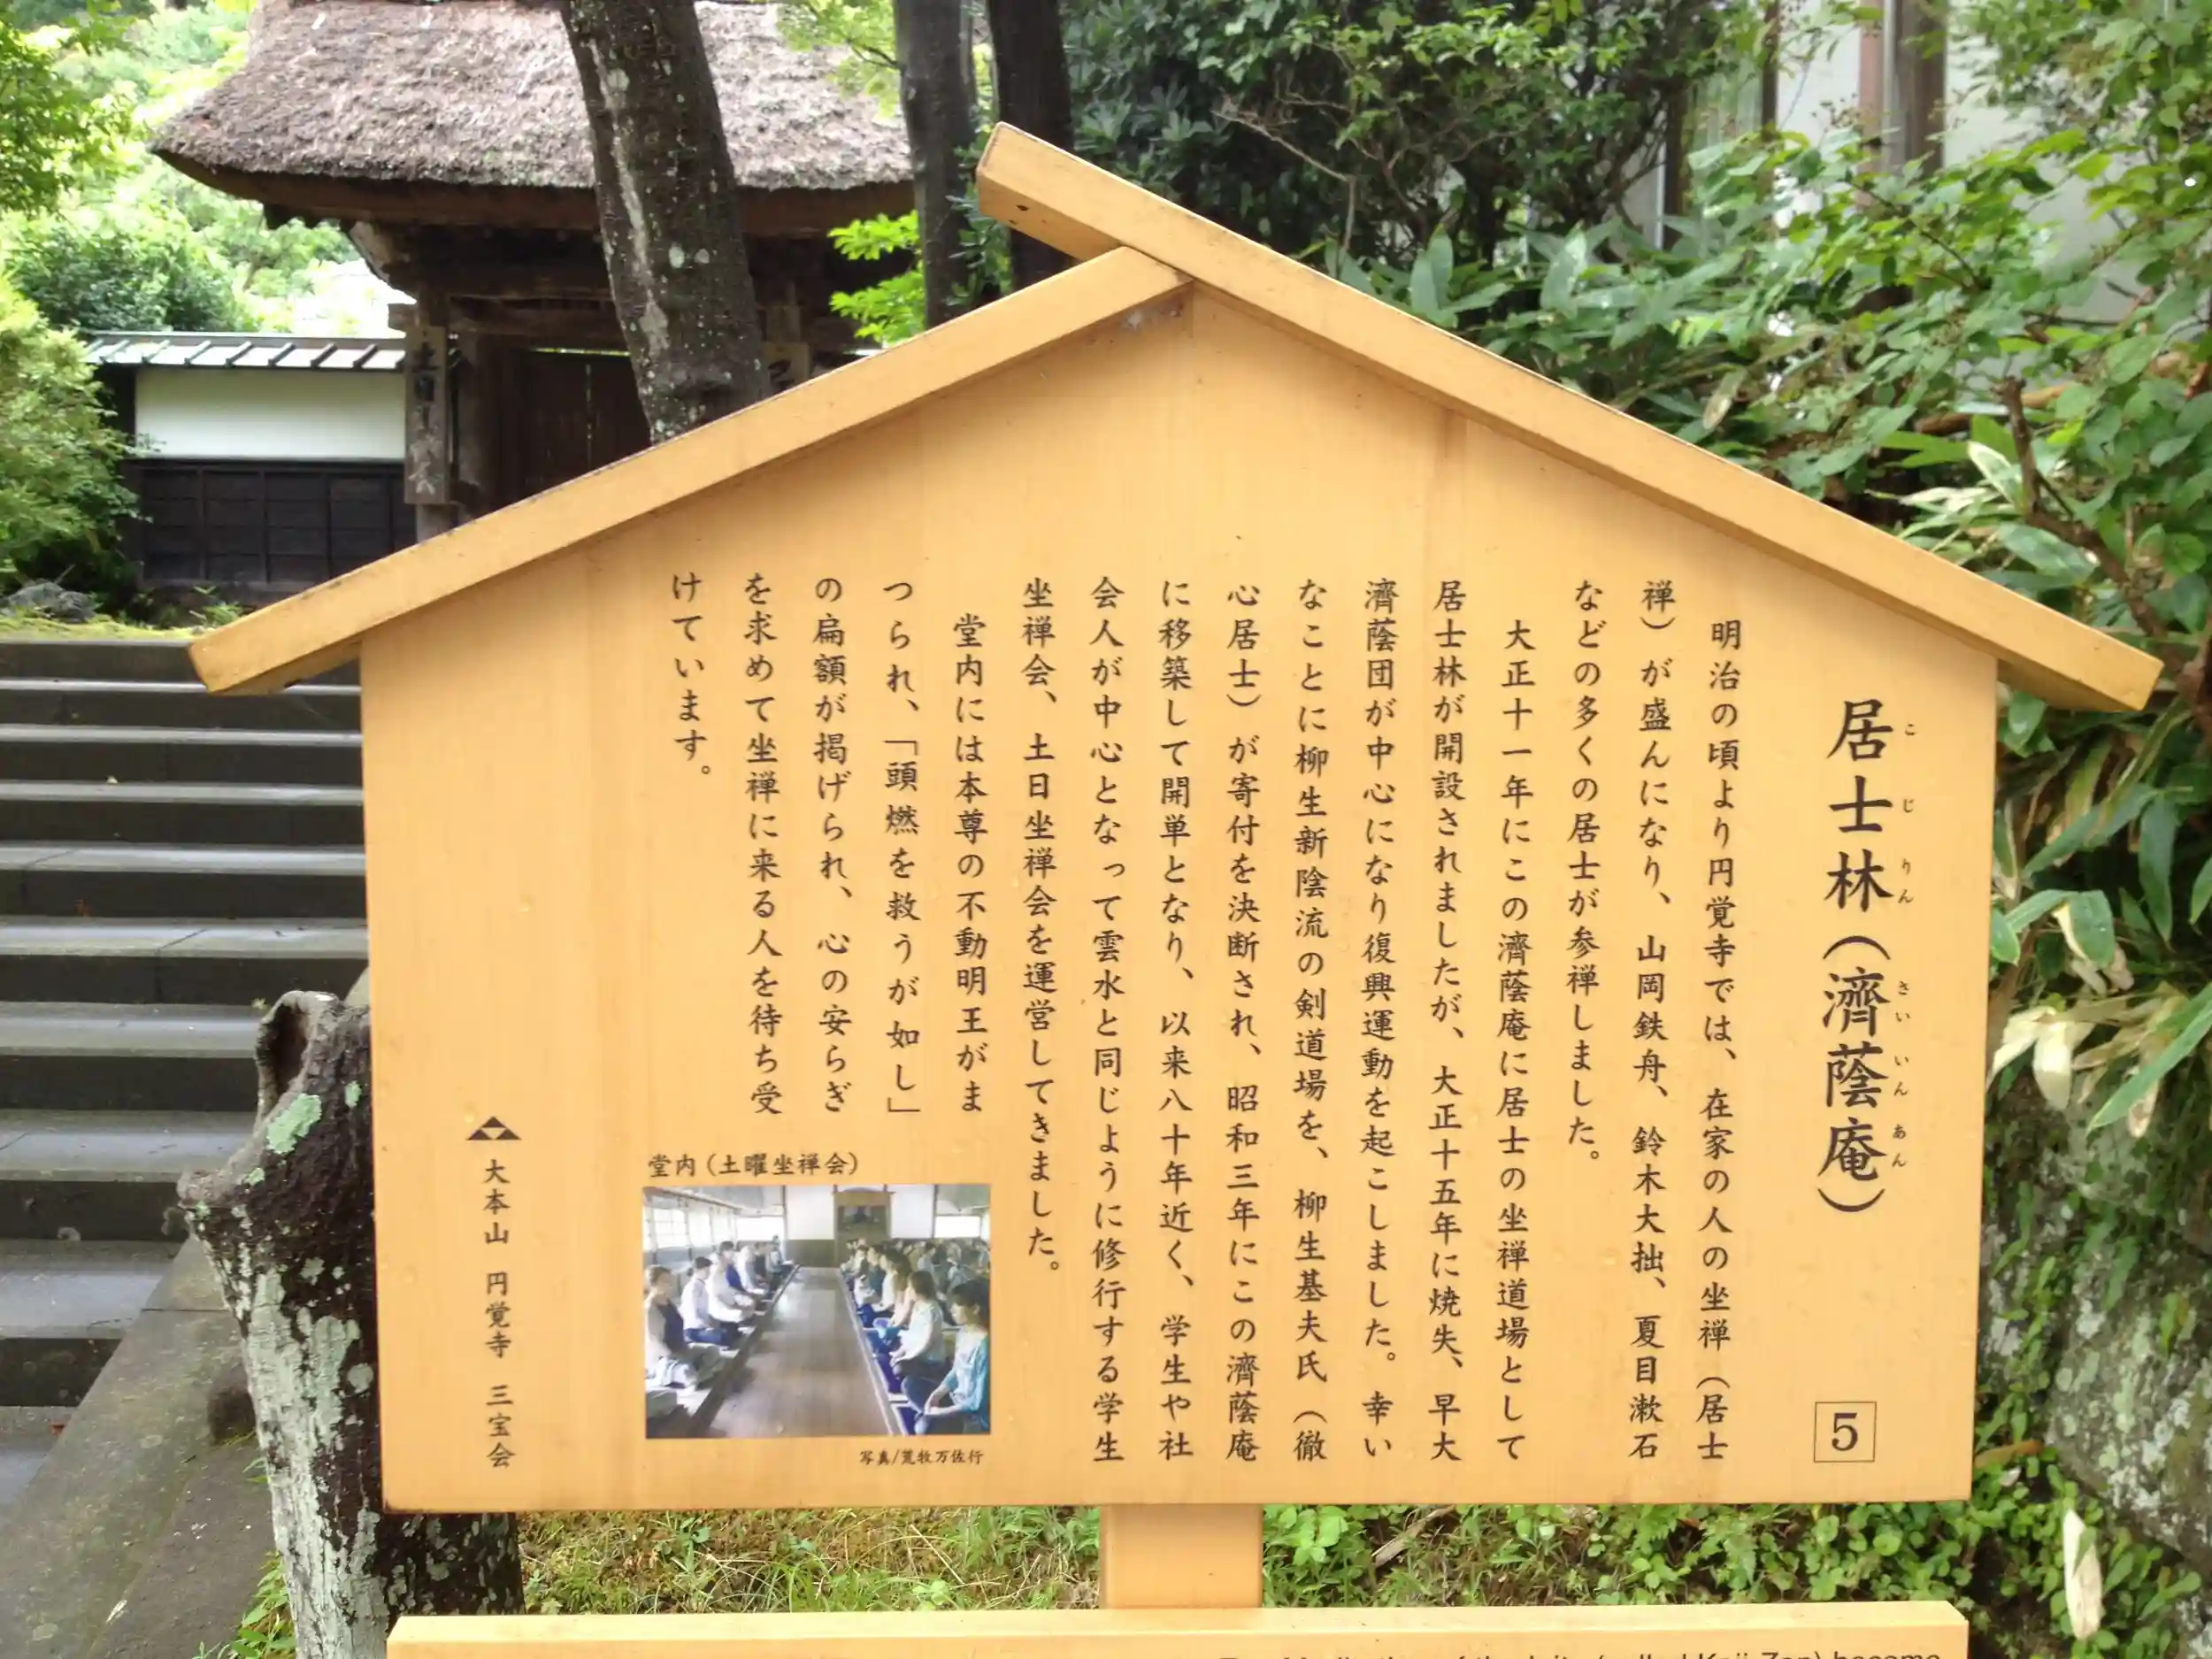 居士林（濟蔭庵）
こ じ りん さい いん あん
5
明治の頃より円覚寺では、在家の人の坐禅（居士
禅）が盛んになり、山岡鉄舟、鈴木大拙、夏目漱石
などの多くの居士が参禅しました。
大正十一年にこの濟蔭庵に居士の坐禅道場として
居士林が開設されましたが、大正十五年に焼失、早大
濟蔭団が中心になり復興運動を起こしました。幸い
なことに柳生新陰流の剣道場を、柳生基夫氏（徹
心居士）が寄付を決断され、昭和三年にこの濟蔭庵
に移築して開単となり、以来八十年近く、学生や社
会人が中心となって雲水と同じように修行する学生
坐禅会、土日坐禅会を運営してきました。
堂内には本尊の不動明王がま
つられ、「頭燃を救うが如し」
の扁額が掲げられ、心の安らぎ
を求めて坐禅に来る人を待ち受
けています。
堂内（土曜坐禅会）
写真/荒牧万佐行
大本山 円覚寺 三宝会